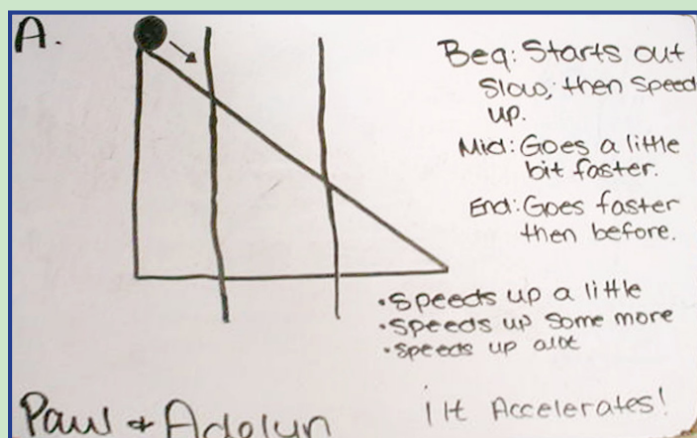 A.
Beg: Starts out
Slow, then Speed
up.
Mid: Goes a little
bit faster.
End: Goes faster
then before.
• Speeds up a little
• Speeds up Some more
• Speeds up alot
¡ It Accelerates!
Paul + Adelyn